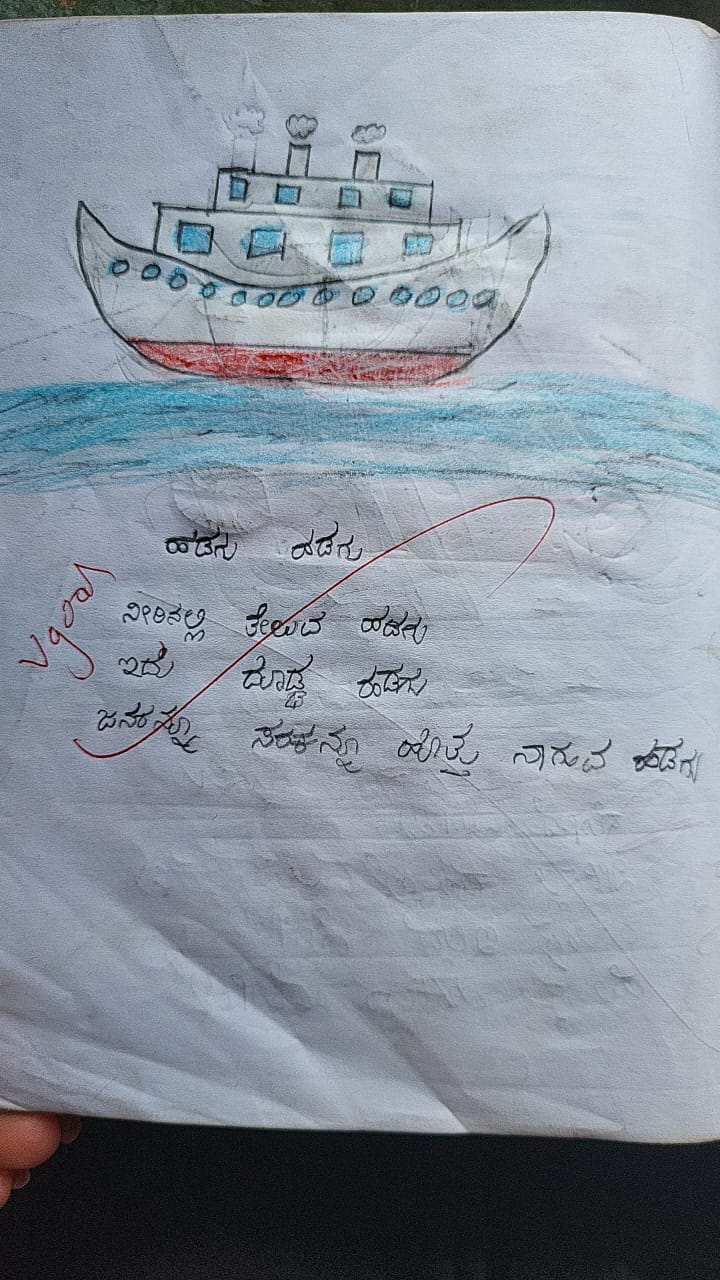 ಹಡಗು ಹಡಗು
ನೀರಿನಲ್ಲಿ ತೇಲುವ ಹಡಗು
ಇದು ದೊಡ್ಡ ಹಡಗು
ಜನರನ್ನೂ ಸರಕನ್ನೂ ಹೊತ್ತು ಸಾಗುವ ಹಡಗು
Vgood